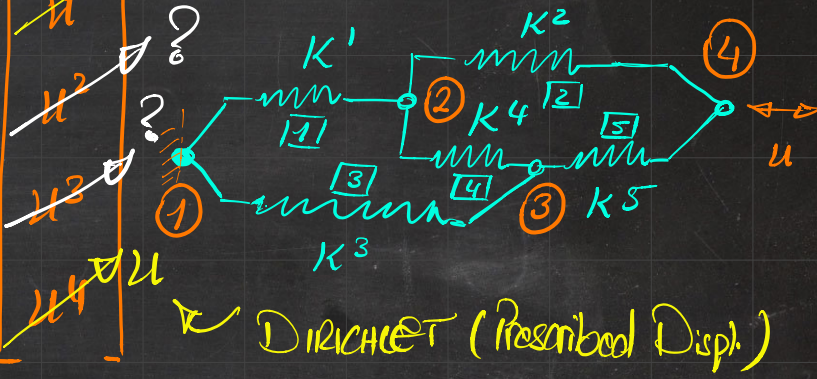 u
u² ?
u³ ?
u4 u
K¹
1
K²
2
K4
4
5
K5
3
K³
①
②
③
④
u
DIRICHLET (Prescribed Displ.)